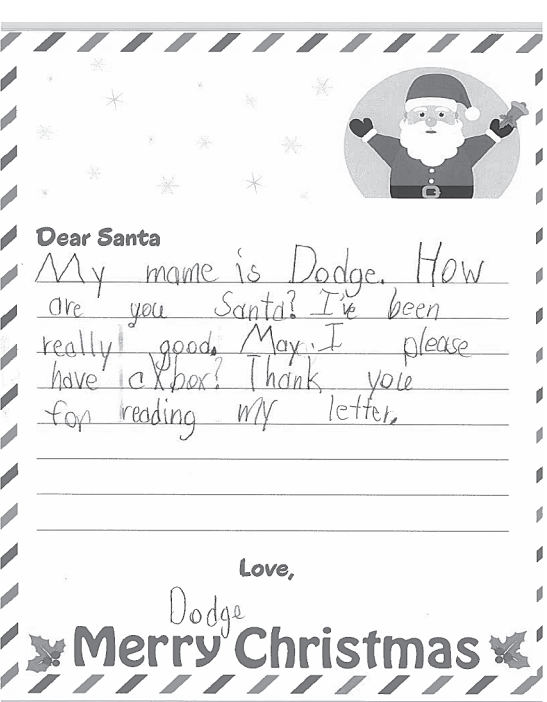 Dear Santa
My mame is Dodge. How
are you Santa? I've been
really good. May I please
have a Xbox? Thank you
for reading my letter.
Love,
Dodge
Merry Christmas